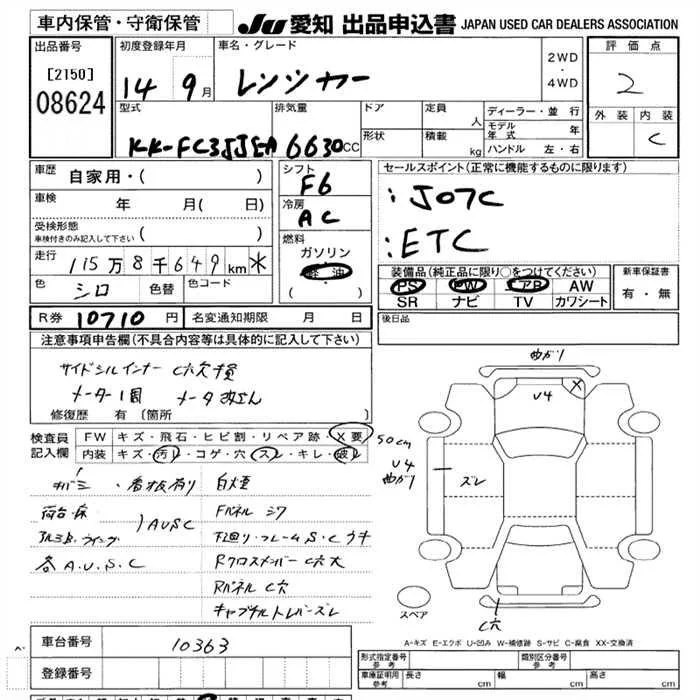 車内保管・守衛保管 JU 愛知 出品申込書 JAPAN USED CAR DEALERS ASSOCIATION
出品番号 初度登録年月 車名・グレード 評価点
[2150] 14 9月 レンジャー 2WD・4WD 2
08624 外装 内装
型式 排気量 ドア 定員 人 ディーラー・並行 C
モデル年式 年
KK-FC3JJEA 6630CC 形状 積載 kg ハンドル 左・右
車歴 自家用・( ) シフト F6 セールスポイント(正常に機能するものに限ります)
車検 年 月( 日) 冷房 AC :J07C
受検形態 車検付きのみ記入して下さい ( ) 燃料 :ETC
走行 115万8千649km * ガソリン
軽油
色 シロ 色替 色コード ( )
装備品(純正品に限り○をつけてください) 新車保証書
PS PW エアB AW 有・無
SR ナビ TV カワシート
R券 10710円 名変通知期限 月 日 後日品
注意事項申告欄(不具合内容等は具体的に記入して下さい)
サイドシルインナー C穴損
メーター1周 メータ改ざん
修復歴 有 (箇所 )
検査員記入欄 FW キズ・飛石・ヒビ割・リペア跡・X要
内装 キズ・汚レ・コゲ・穴・スレ・キレ・破レ
看板有り 白煙
荷台・床 Fパネル シワ
AUSC 下廻り・フレームS・Cウキ
各A.U.S.C Rクロスメンバー C穴大
Rパネル C穴
キャブチルトレバーズレ
曲がり
U4 X
50cm
U4
曲がり
ズレ
スペア
C穴
A-キズ E-エクボ U-凹み W-補修跡 S-サビ C-腐食 XX-交換済
車台番号 10363
登録番号
形式指定番号 参考 類別区分番号 参考
車庫証明用 参考 長さ cm 幅 cm 高さ cm